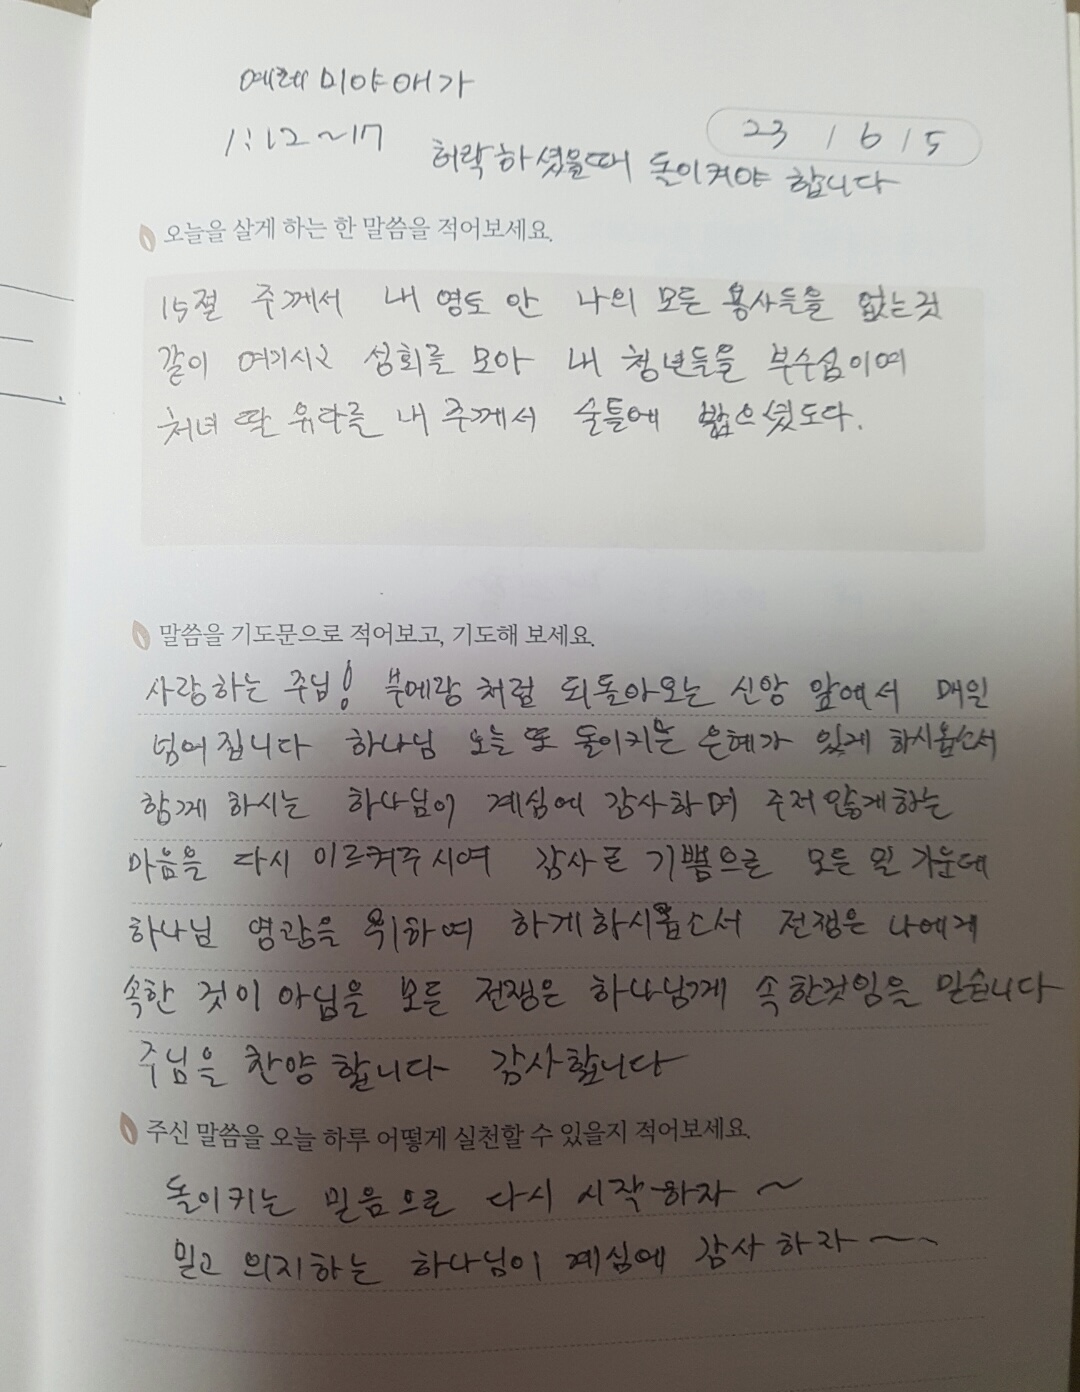 예레미야애가
1:12~17
23 / 6 / 5
허락하셨을때 돌이켜야 합니다
오늘을 살게 하는 한 말씀을 적어보세요.
15절 주께서 내 영토 안 나의 모든 용사들을 없는것
같이 여기시고 성회를 모아 내 청년들을 부수심이여
처녀 딸 유다를 내 주께서 술틀에 밟으셨도다.
말씀을 기도문으로 적어보고, 기도해 보세요.
사랑하는 주님! 부메랑 처럼 되돌아오는 신앙 앞에서 매일
넘어집니다 하나님 오늘 또 돌이키는 은혜가 있게 하시옵소서
함께 하시는 하나님이 계심에 감사하며 주저않게하는
마음을 다시 이르켜주시여 감사로 기쁨으로 모든 일 가운데
하나님 영광을 위하여 하게하시옵소서 전쟁은 나에게
속한 것이 아님을 모든 전쟁은 하나님께 속한것임을 믿습니다
주님을 찬양합니다 감사합니다
주신 말씀을 오늘 하루 어떻게 실천할 수 있을지 적어보세요.
돌이키는 믿음으로 다시 시작하자 ~
믿고 의지하는 하나님이 계심에 감사하자 ~